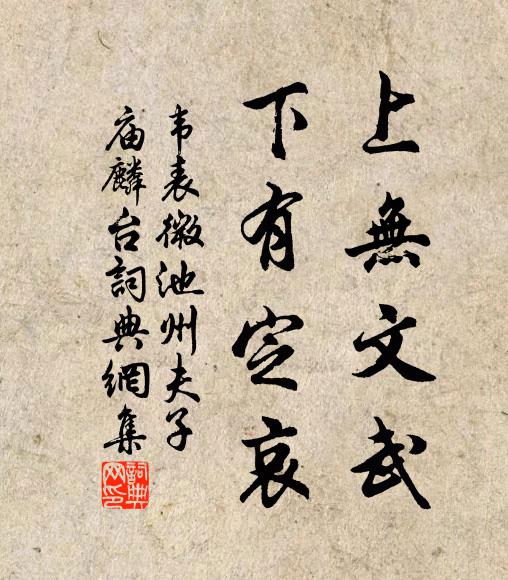 上無文武
下有定哀
韦表微池州夫子
庙麟台詞典網集
詞典
网印